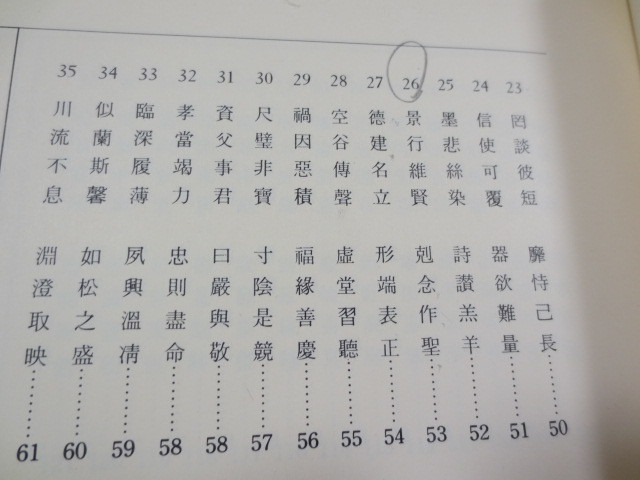 23 罔談彼短 靡恃己長………50
24 信使可覆 器欲難量………51
25 墨悲絲染 詩讃羔羊………52
26 景行維賢 剋念作聖………53
27 德建名立 形端表正………54
28 空谷傳聲 虛堂習聽………55
29 禍因惡積 福緣善慶………56
30 尺璧非寶 寸陰是競………57
31 資父事君 曰嚴與敬………58
32 孝當竭力 忠則盡命………58
33 臨深履薄 夙興溫凊………59
34 似蘭斯馨 如松之盛………60
35 川流不息 淵澄取映………61